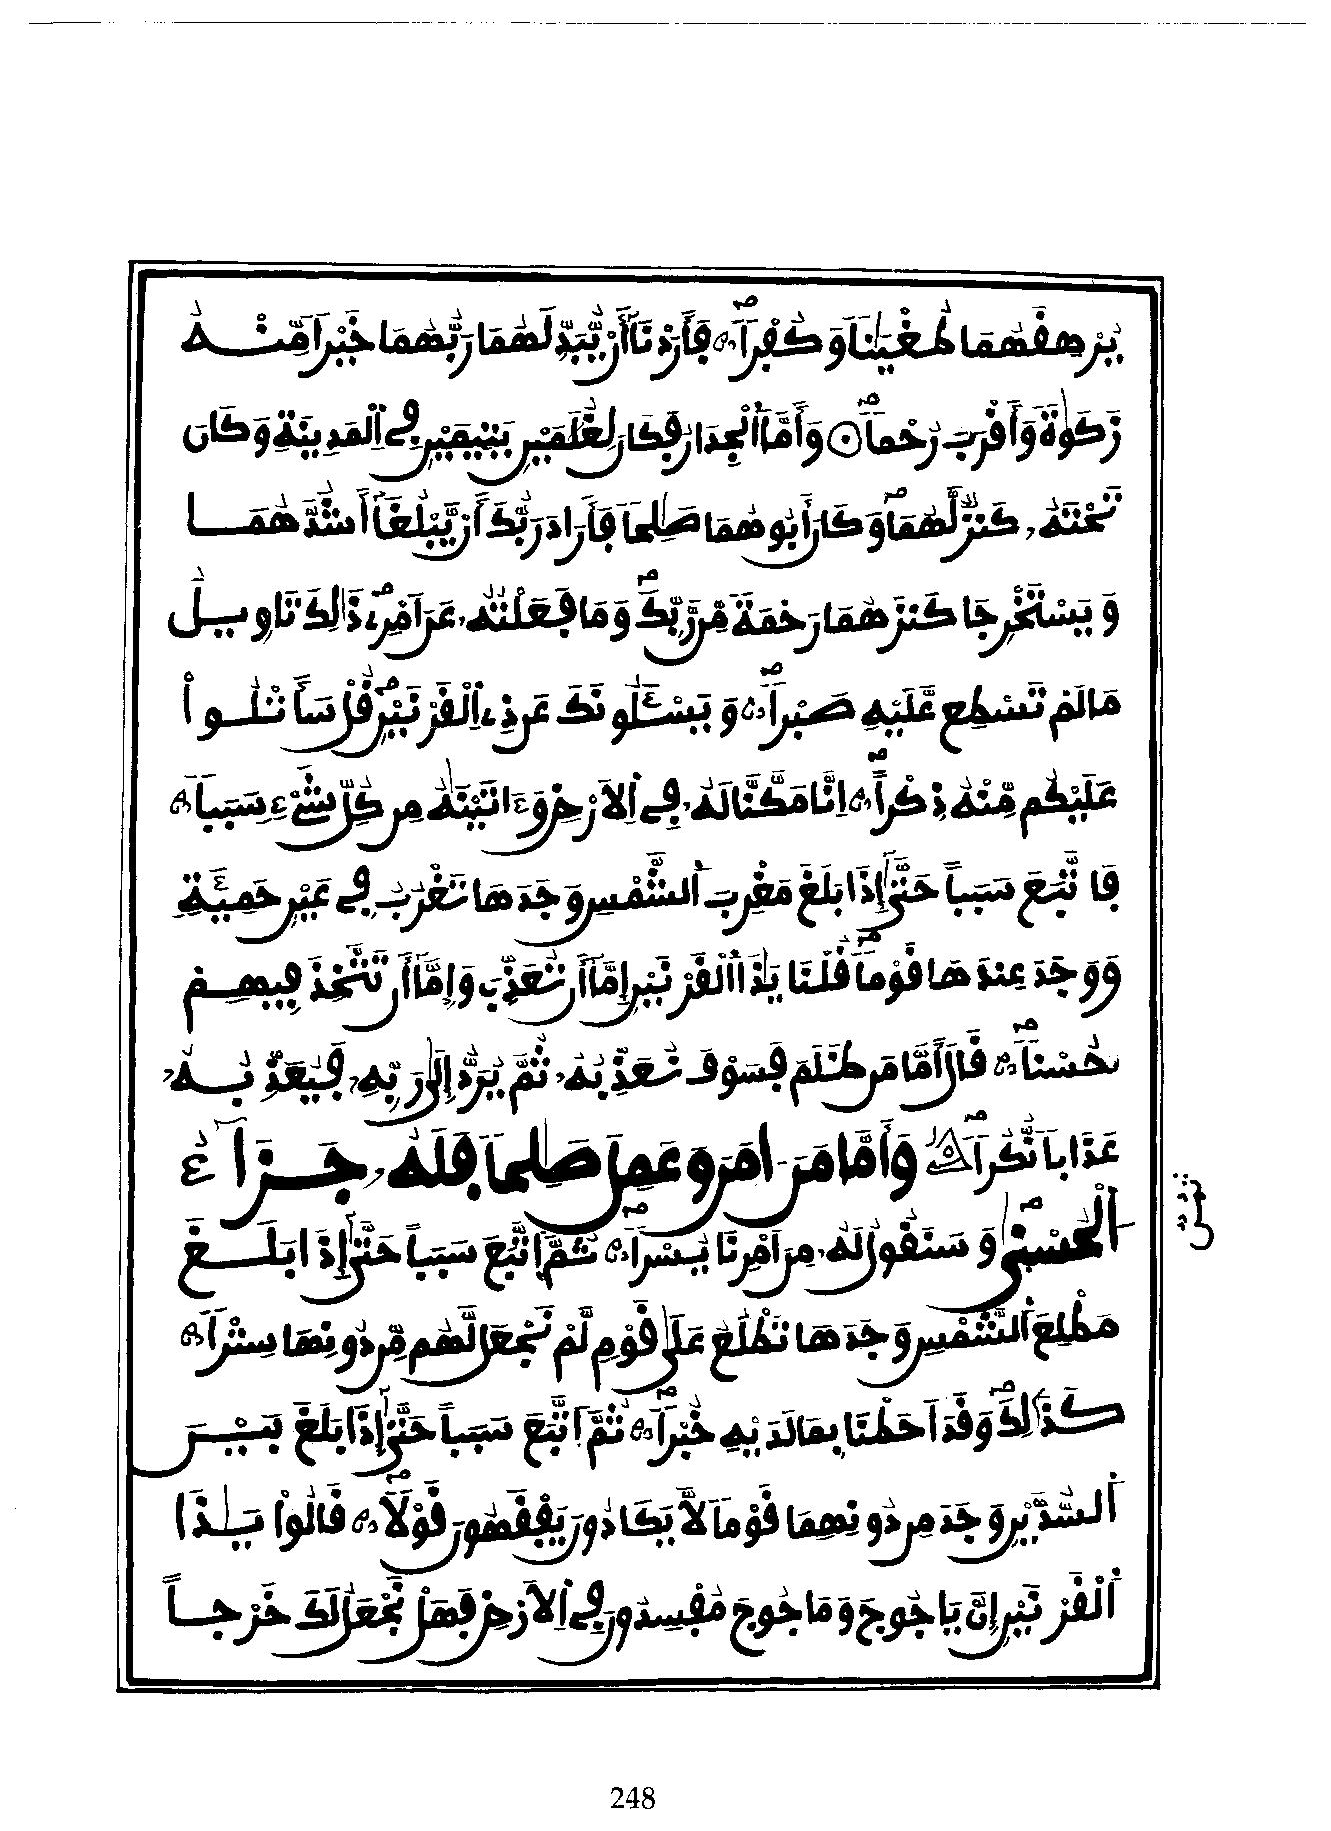 يُرْهِقَهُمَا طُغْيَٰناً وَكُفْراً فَأَرَدْنَا أَنْ يُّبَدِّلَهُمَا رَبُّهُمَا خَيْراً مِّنْهُ
زَكَوٰةً وَأَقْرَبَ رُحْماً وَأَمَّا اَ۬لْجِدَارُ فَكَانَ لِغُلَٰمَيْنِ يَتِيمَيْنِ فِے اِ۬لْمَدِينَةِ وَكَانَ
تَحْتَهُۥ كَنزٌ لَّهُمَا وَكَانَ أَبُوهُمَا صَٰلِحاً فَأَرَادَ رَبُّكَ أَنْ يَّبْلُغَا أَشُدَّهُمَا
وَيَسْتَخْرِجَا كَنزَهُمَا رَحْمَةً مِّن رَّبِّكَ وَمَا فَعَلْتُهُۥ عَنَ اَمْرِے ذَٰلِكَ تَاوِيلُ
مَا لَمْ تَسْطِع عَّلَيْهِ صَبْراً وَيَسْـَٔلُونَكَ عَن ذِے اِ۬لْقَرْنَيْنِ قُلْ سَأَتْلُواْ
عَلَيْكُم مِّنْهُ ذِكْراً اِنَّا مَكَّنَّا لَهُۥ فِے اِ۬لَارْضِ وَءَاتَيْنَٰهُ مِن كُلِّ شَےْءٍ سَبَباً
فَاتَّبَعَ سَبَباً حَتَّىٰ إِذَا بَلَغَ مَغْرِبَ اَ۬لشَّمْسِ وَجَدَهَا تَغْرُبُ فِے عَيْنٍ حَمِئَةٍ
وَوَجَدَ عِندَهَا قَوْماً قُلْنَا يَٰذَا اَ۬لْقَرْنَيْنِ إِمَّا أَن تُعَذِّبَ وَإِمَّا أَن تَتَّخِذَ فِيهِمْ
حُسْناً قَالَ أَمَّا مَن ظَلَمَ فَسَوْفَ نُعَذِّبُهُۥ ثُمَّ يُرَدُّ إِلَىٰ رَبِّهِۦ فَيُعَذِّبُهُۥ
عَذَاباً نُّكُراً وَأَمَّا مَنَ اٰمَنَ وَعَمِلَ صَٰلِحاً فَلَهُۥ جَزَآءُ
اُ۬لْحُسْنَىٰ وَسَنَقُولُ لَهُۥ مِنَ اَمْرِنَا يُسْراً ثُمَّ اَتَّبَعَ سَبَباً حَتَّىٰ إِذَا بَلَغَ
مَطْلِعَ اَ۬لشَّمْسِ وَجَدَهَا تَطْلُعُ عَلَىٰ قَوْمٍ لَّمْ نَجْعَل لَّهُم مِّن دُونِهَا سِتْراً
كَذَٰلِكَ وَقَدَ اَحَطْنَا بِمَا لَدَيْهِ خُبْراً ثُمَّ اَتَّبَعَ سَبَباً حَتَّىٰ إِذَا بَلَغَ بَيْنَ
اَ۬لسُّدَّيْنِ وَجَدَ مِن دُونِهِمَا قَوْماً لَّا يَكَادُونَ يَفْقَهُونَ قَوْلاً قَالُواْ يَٰذَا
اَ۬لْقَرْنَيْنِ إِنَّ يَاجُوجَ وَمَاجُوجَ مُفْسِدُونَ فِے اِ۬لَارْضِ فَهَلْ نَجْعَلُ لَكَ خَرْجاً
ثمن
248